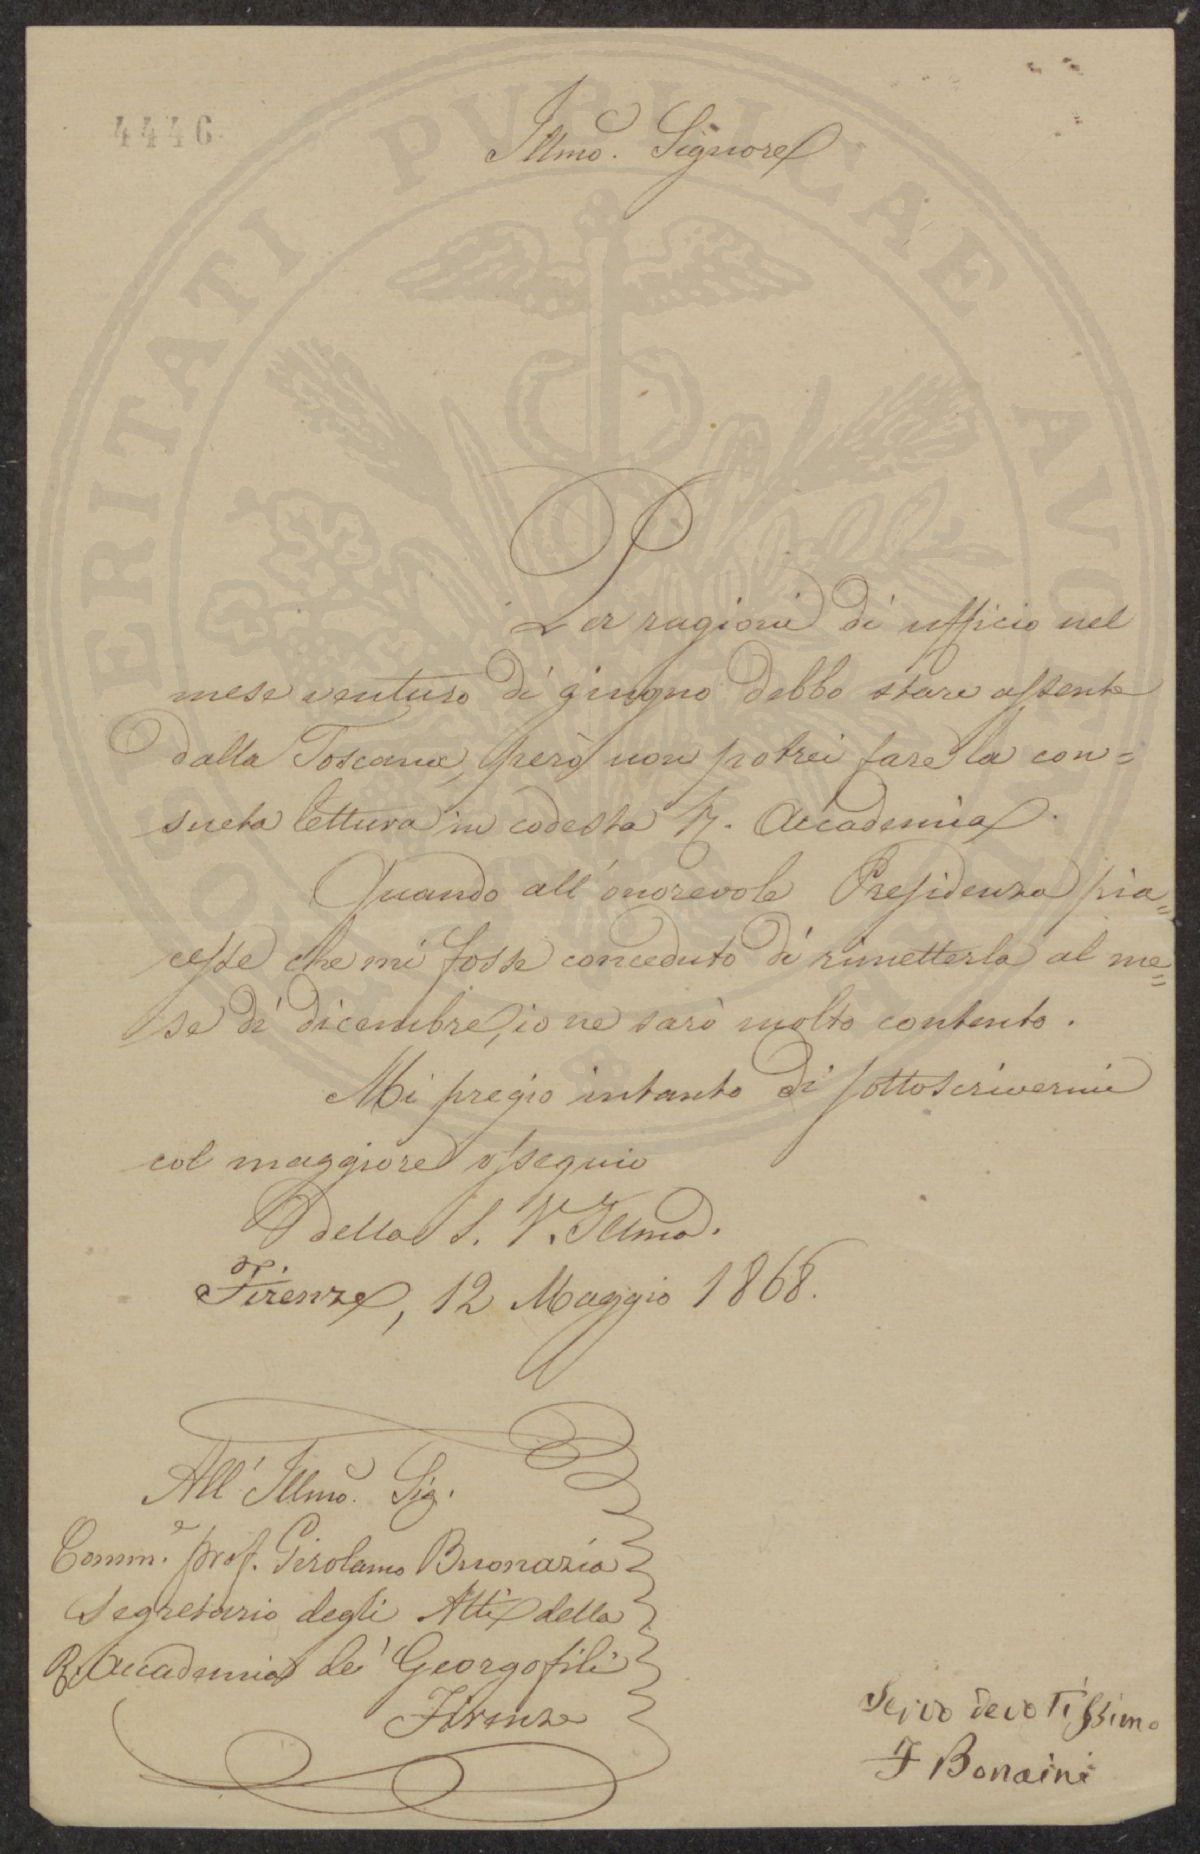 4446
Illmo. Signore
Per ragioni di ufficio nel
mese venturo di giugno debbo stare assente
dalla Toscana, però non potrei fare la con=
sueta lettura in codesta R. Accademia.
Quando all'onorevole Presidenza pia=
cesse che mi fosse conceduto di rimetterla al me=
se di dicembre, io ne sarò molto contento.
Mi pregio intanto di sottoscrivermi
col maggiore ossequio
della S. V. Illma.
Firenze, 12 Maggio 1868.
All' Illmo. Sig.
Comm.e prof. Girolamo Buonazia
Segretario degli Atti della
R. Accademia de' Georgofili
Firenze
Servo devotissimo
F Bonaini
PROSPERITATI PVBLICAE AVGENDAE